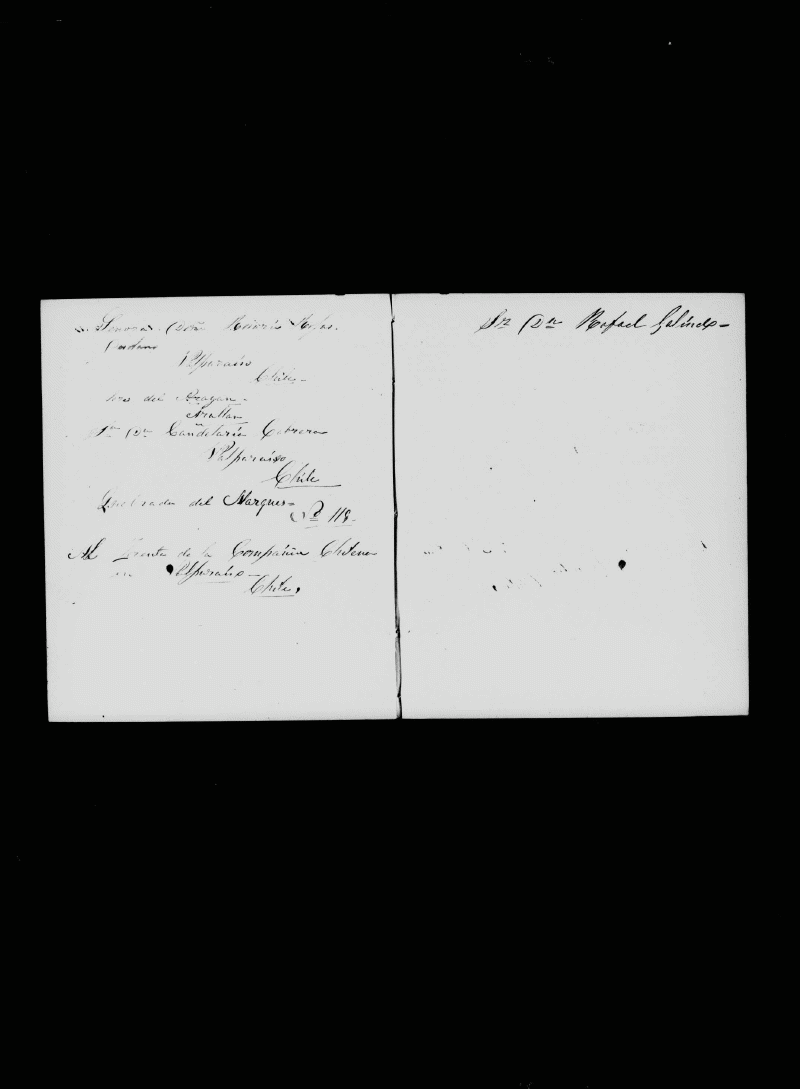 Señora Doña
Valparaiso
Chile
del Aragan
Sra Da Candelaria Cabrera
Valparaiso
Chile
Quebrada del Marques
No 118
Al Frente de la Compañia Chilena
en Valparaiso
Chile
Sr Dn Rafael Galindo